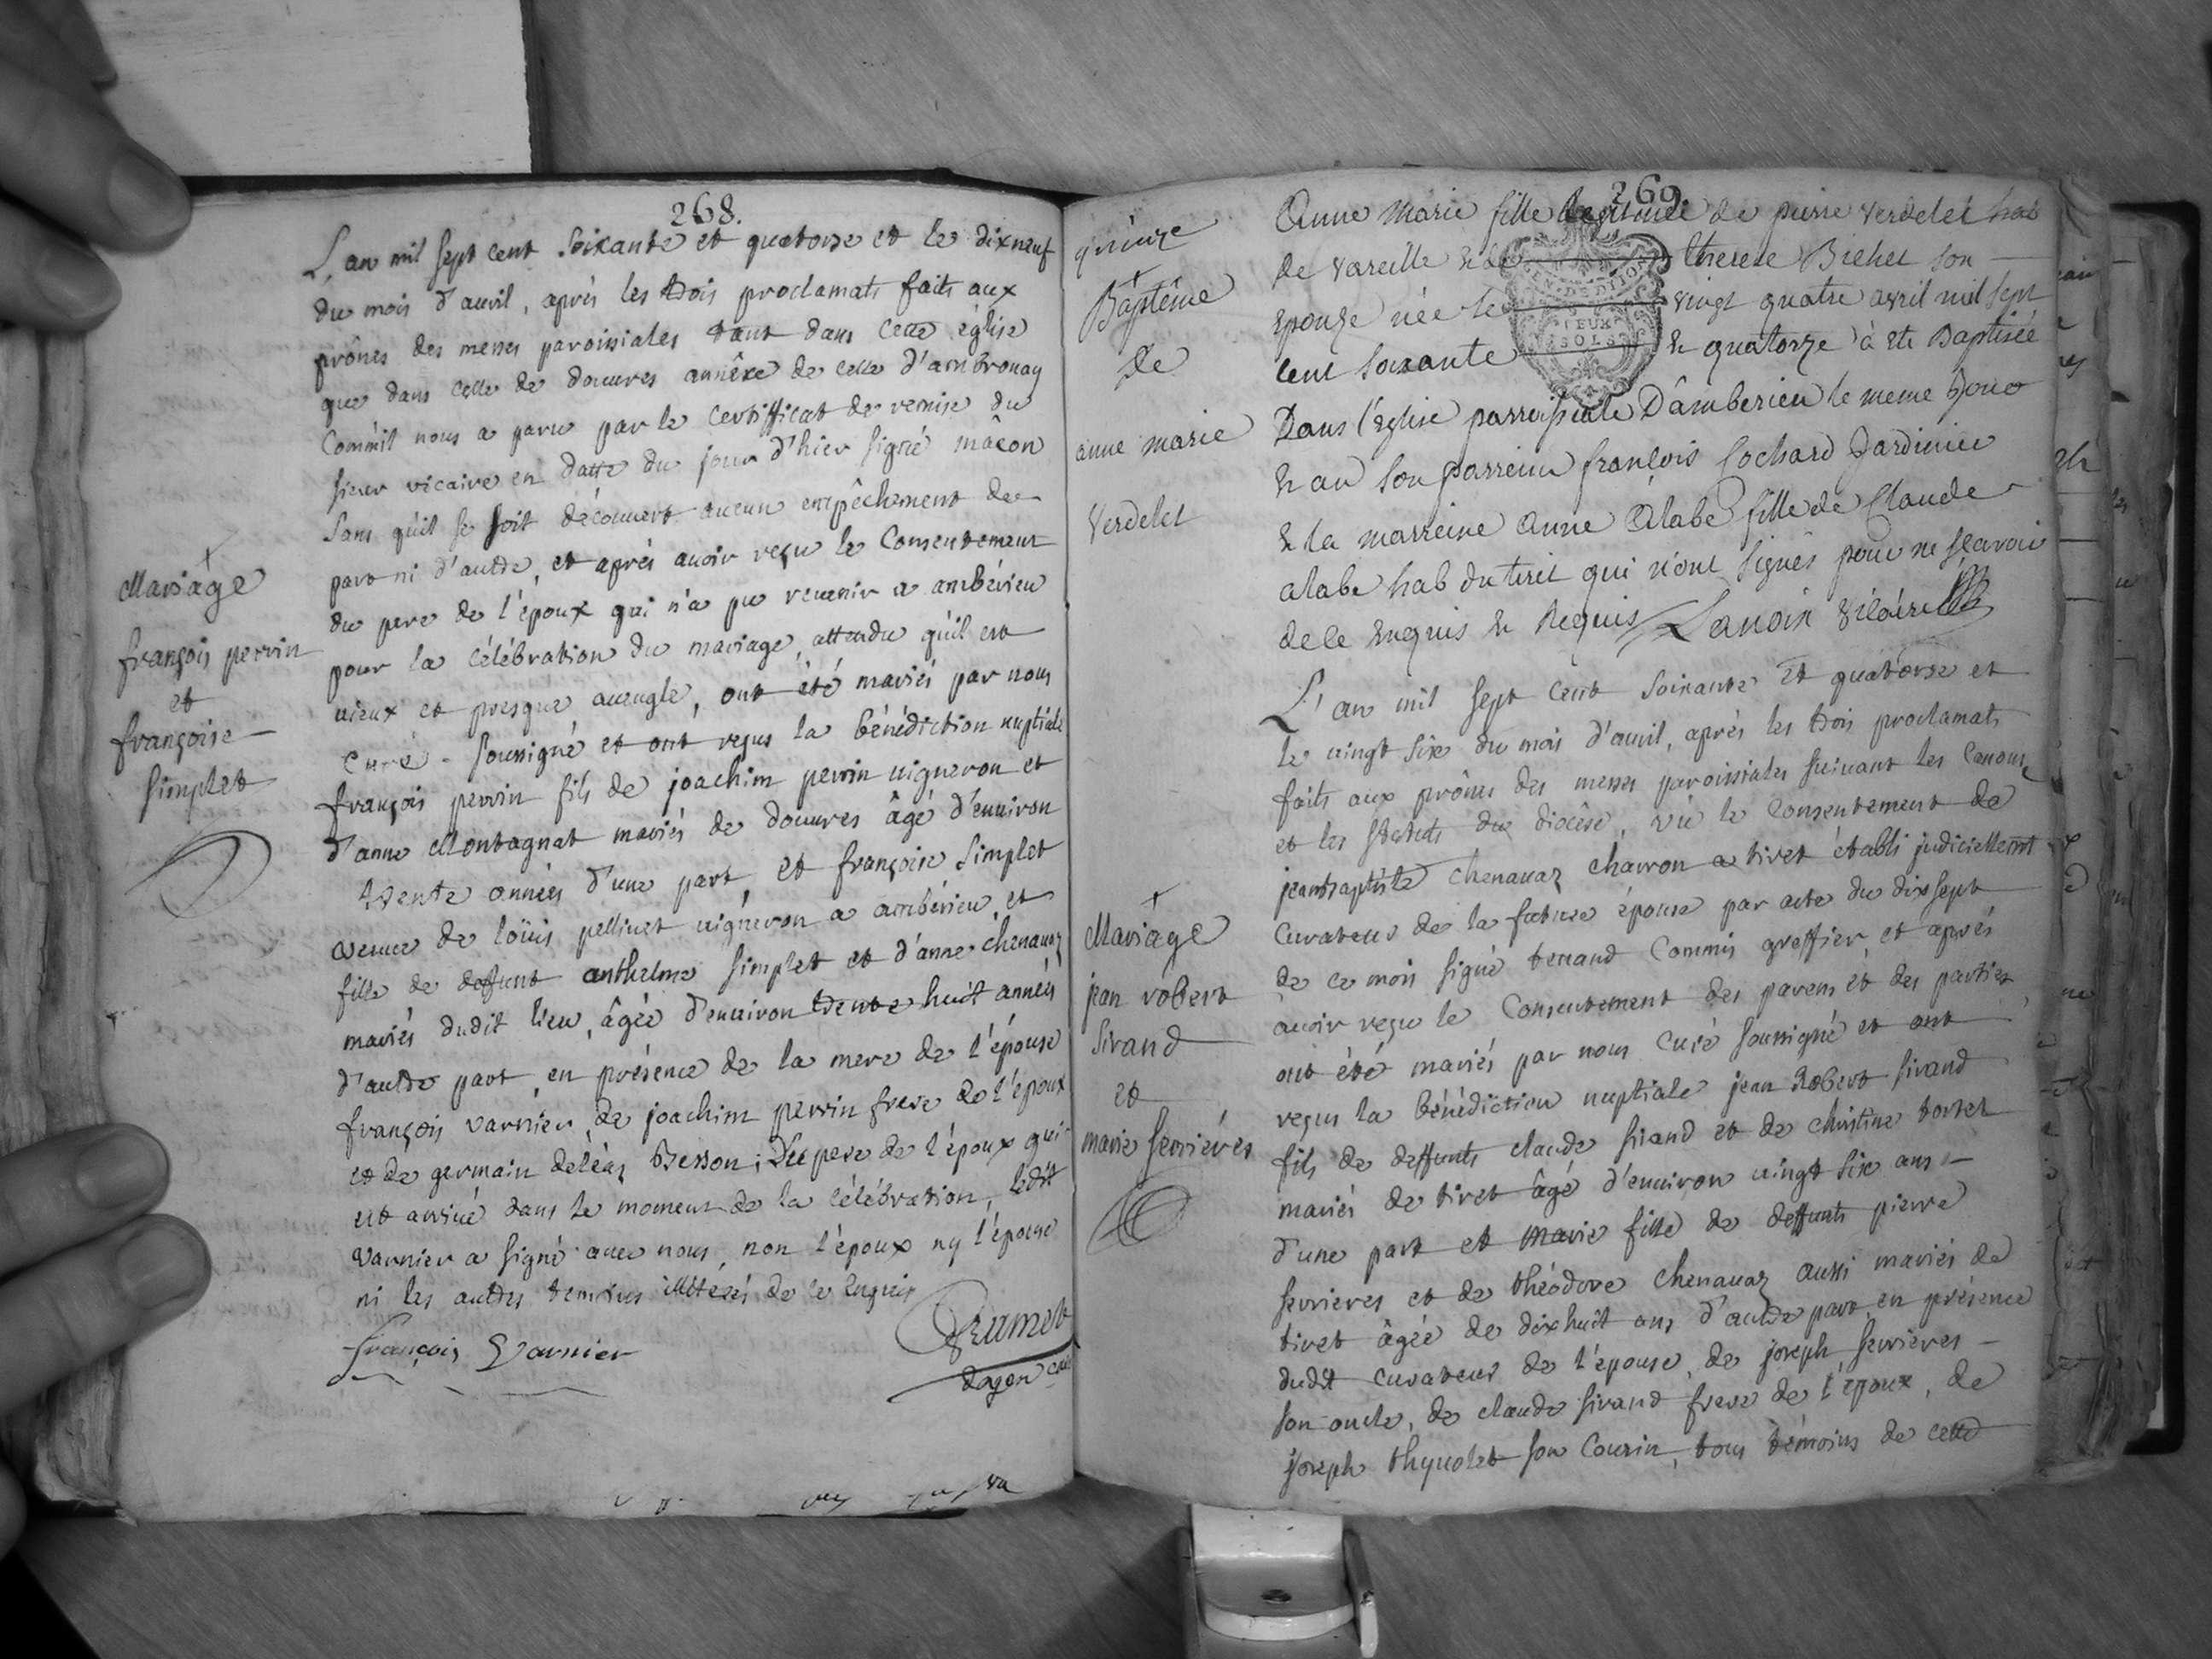 268.
L'an mil sept cent soixante et quatorse et le dixneuf
du mois d'auril, après les trois proclamats faits aux
prônes des messes paroissiales tant dans cette église
que dans celle de douures annêxe de celle d'ambronay
Commil nous a paru par le Certifficat de remise du
sieur vicaire en datte du jour d'hier signé mâcon
sans qu'il se soit découuert aucun empêchement de
part ni d'autre, et après auoir reçu le Consentement
du pere de l'époux qui n'a pu reuenir a ambérieu
pour la célébration du mariage, attendu qu'il est
uieux et presque aueugle, ont été mariés par nous
Curé soussigné et ont reçus la bénédiction nuptiale
françois perrin fils de joachim perrin uigneron et
d'anne Montagnat mariés de douures âgé d'enuiron
trente années d'une part, et françoise simplet
veuue de loüis pellinet uigneron a ambérieu, et
fille de deffunt anthelme simplet et d'anne chenauaz
mariés dudit lieu, âgée d'enuiron trente huit années
d'autre part, en présence de la mere de l'épouse
françois varnier, de joachim perrin frere de l'époux
et de germain deléaz Besson; du pere de l'époux qui
est arriué dans le moment de la célébration, ledit
varnier a signé auec nous, non l'époux ny l'épouse
ni les autres témoins illiterés de ce enquis
françois Varnier
dagen curé
Mariage
françois perrin
et
françoise
simplet
269.
quinze
Baptême
de
anne marie
Verdelet
Anne Marie fille legitimee de pierre verdelet hab
de vareille & de therese Bichet son
epouze née le vingt quatre avril mil sept
cent soixante & quatorze à ete Baptisée
Dans l'eglise parroissiale D'amberieu le meme jour
& an son parrein françois Cochard Jardinier
& la marreine Anne Alabe fille de Claude
alabe hab du tiret qui n'ont signés pour ne sçavoir
de ce enquis & Requis Lanoix vicaire
L'an mil sept cent soixante et quatorse et
le uingt six du mois d'auril, après les trois proclamats
faits aux prônes des messes paroissiales suiuant les Canons
et les statuts du diocèse, vû le consentement de
jeanbaptiste chenauaz charron a tiret établi judiciellement
Curateur de la future épouse par acte du dix sept
de ce mois signé tenand Commis greffier, et après
auoir reçu le Consentement des parens et des parties
ont été mariés par nous Curé soussigné et ont
reçus la bénédiction nuptiale jean Robert sirand
fils de deffunts claude sirand et de christine tornet
mariés de tiret âgé d'enuiron uingt six ans
d'une part et marie fille de deffunts pierre
serrieres et de théodore chenauaz aussi mariés de
tiret âgée de dixhuit ans d'autre part, en présence
dudit curateur de l'épouse, de joseph serrieres
son oncle, de claude sirand frere de l'époux, de
joseph thyuolet son Cousin, tous témoins de cette
Mariage
jean robert
sirand
et
marie serrieres